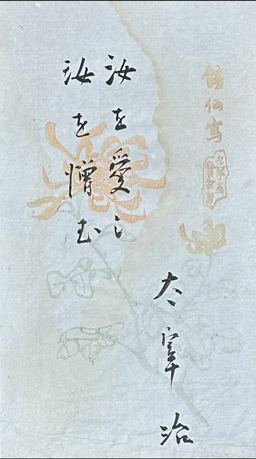 汝を愛し
汝を憎む
太宰治
仙寫